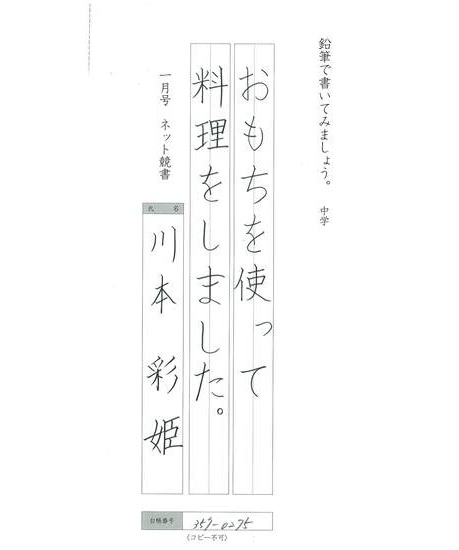 鉛筆で書いてみましょう。 中学
おもちを使って
料理をしました。
一月号 ネット競書
氏 名
川本 彩姫
台帳番号 359-0275
(コピー不可)